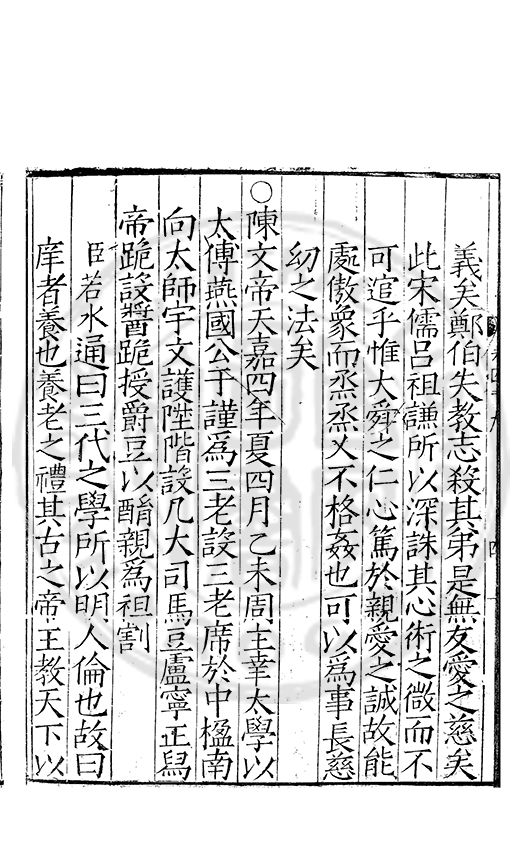 義矣鄭伯失教志殺其弟是無友愛之慈矣
此宋儒呂祖謙所以深誅其心術之微而不
可逭乎惟大舜之仁心篤於親愛之誠故能
處傲象而烝烝乂不格姦也可以為事長慈
幼之法矣
○陳文帝天嘉四年夏四月乙未周主幸太學以
太傅燕國公于謹為三老設三老席於中楹南
向太師宇文護陞階設几大司馬豆盧寧正舄
帝跪設醬跪授爵豆以酳親為袒割
臣若水通曰三代之學所以明人倫也故曰
庠者養也養老之禮其古之帝王教天下以